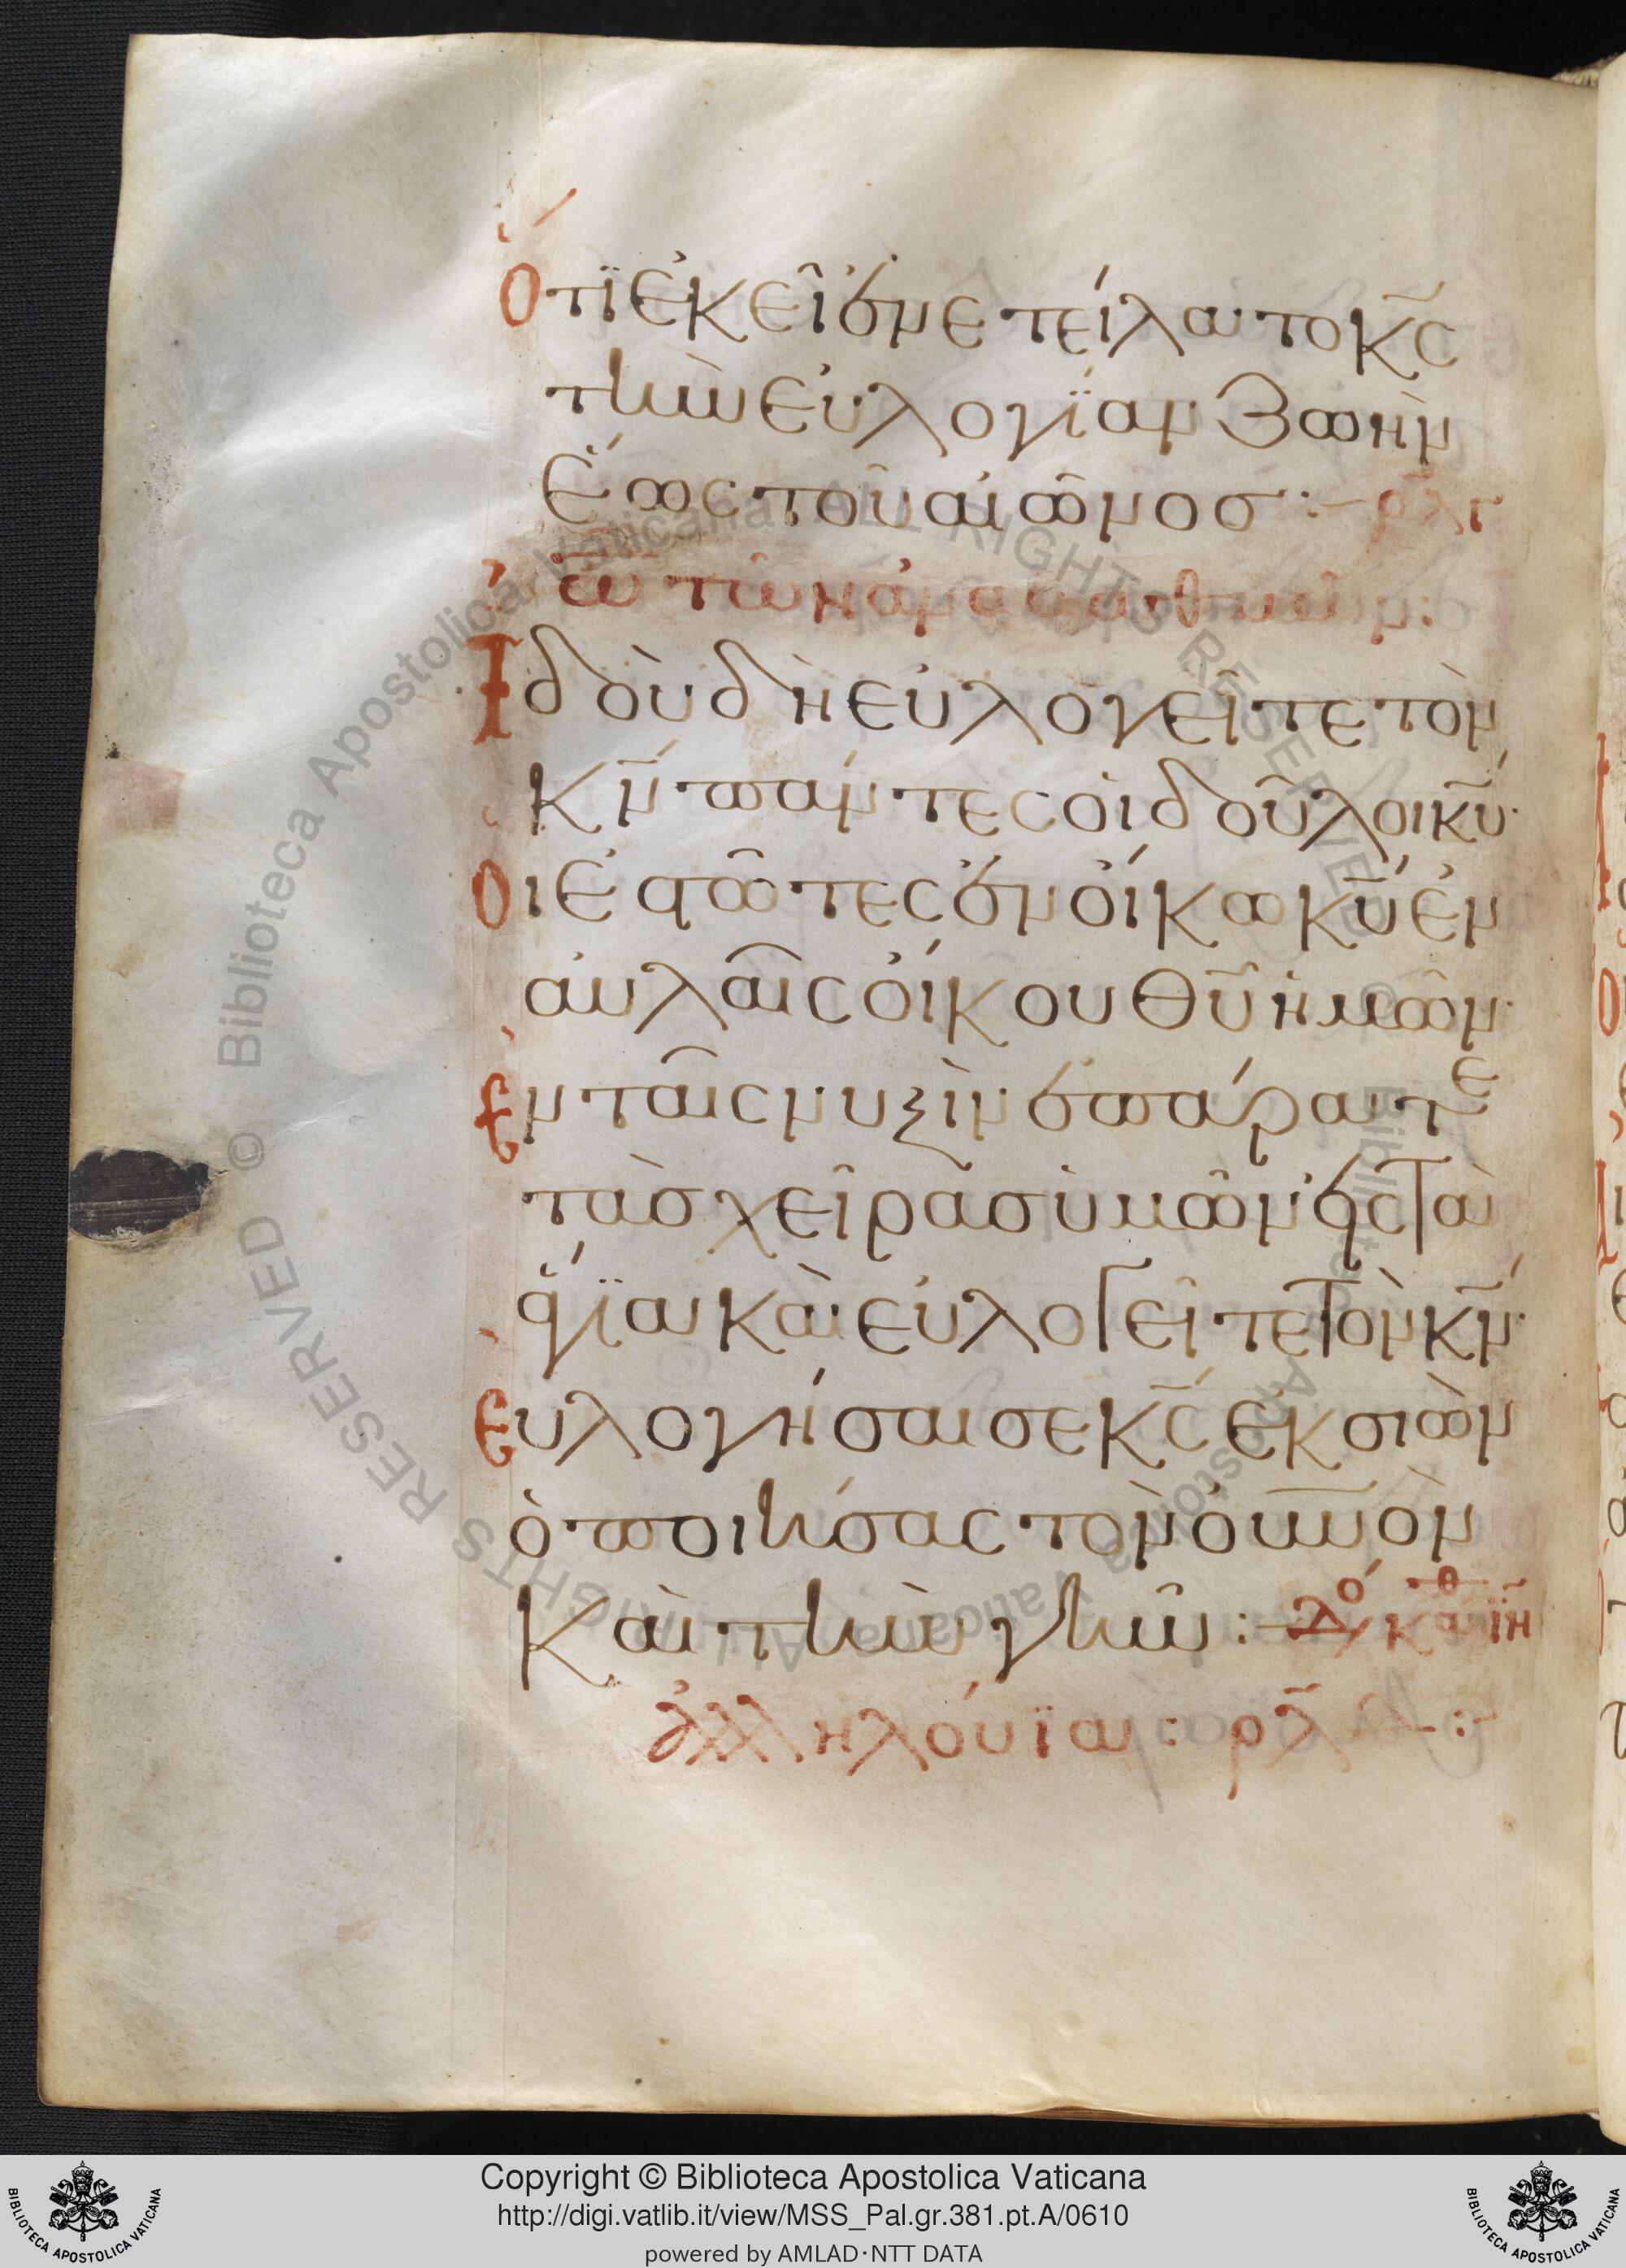 Ὅτϊ ἐκεῖ ἐνετείλατο κς̃
τὴν εὐλογΐαν ζωὴν
ἕως τοῦ αἰῶνος :– ρλγ
ὠ τῶν ἀναβαθμῶν :
Ἰδοὺ δὴ εὐλογεῖτε τὸν
κν̃ πάντες οἱ δοῦλοι κυ̃·
Οἱ ἑστῶτες ἐν οἴκω κυ̃ ἐν
αὐλαῖς οἴκου θυ̃ ἡμῶν·
Ἐν ταῖς νυξὶν ἐπάρατε
τὰσ χεῖρασ ὑμῶν εἰς τὰ
ἅγϊα καὶ εὐλογεῖτε τὸν κν̃·
Εὐλογήσαι σε κς̃ ἐκ σιὼν
ὁ ποιήσας τὸν οὐνὸν
καὶ τὴν γῆν :–
ἀλληλούϊα : ρλδ :–
© Biblioteca Apostolica Vaticana ALL RIGHTS RESERVED © Biblioteca Apostolica Vaticana ALL RIGHTS RESERVED
Copyright © Biblioteca Apostolica Vaticana
http://digi.vatlib.it/view/MSS_Pal.gr.381.pt.A/0610
powered by AMLAD·NTT DATA
BIBLIOTECA APOSTOLICA VATICANA
BIBLIOTECA APOSTOLICA VATICANA